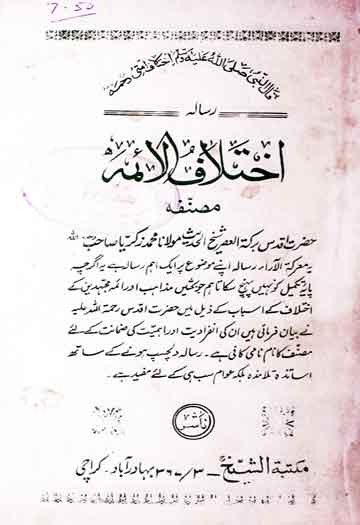 7-50
قال النبی صلی اللہ علیہ وسلم اختلاف امتی رحمة
رسالہ
اختلاف الائمہ
مصنفہ
حضرت اقدس برکۃ العصر شیخ الحدیث مولانا محمد زکریا صاحب رحمۃ اللہ
یہ معرکۃ الآراء رسالہ اپنے موضوع پر ایک اہم رسالہ ہے یہ اگرچہ
پایہ تکمیل کو نہیں پہنچ سکا تاہم جو بحثیں مذاہب اور ائمہ مجتہدین کے
اختلاف کے اسباب کے ذیل میں حضرت اقدس رحمۃ اللہ علیہ
نے بیان فرمائی ہیں ان کی انفرادیت اور اہمیت کی ضمانت کے لئے
مصنف کا نام نامی کافی ہے۔ رسالہ دلچسپ ہونے کے ساتھ
اساتذہ تلامذہ بلکہ عوام سب ہی کے لئے مفید ہے۔
ناشر
مکتبۃ الشیخ ۳/۳۶۷ بہادر آباد۔ کراچی